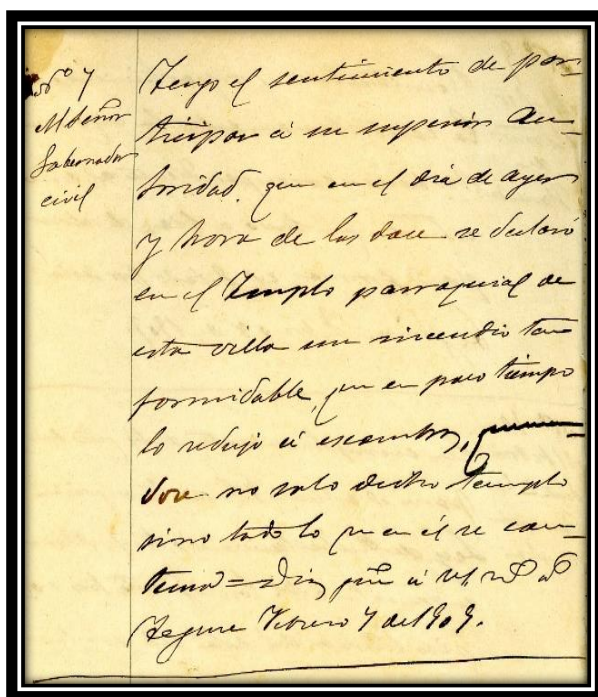 Nº 7
Al Señor
Gobernador
civil
Tengo el sentimiento de par-
ticipar á su superior Au-
toridad, que en el dia de ayer
y hora de las doce se declaró
en el Templo parroquial de
esta villa un incendio tan
formidable, que en poco tiempo
lo redujo á escombros, queman-
dose no solo dicho templo
sino todo lo que en él se con-
tenia = Dios gue á V. S. ms as
Teguise Febrero 7 de 1909.